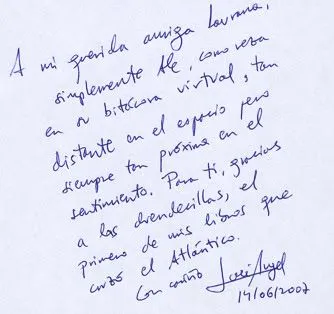 A mi querida amiga Lorena,
simplemente Ale, como reza
en su bitácora virtual, tan
distante en el espacio pero
siempre tan próxima en el
sentimiento. Para ti, gracias
a las drendecillas, el
primero de mis libros que
cruzó el Atlántico.
Con cariño José Angel
14/06/2007